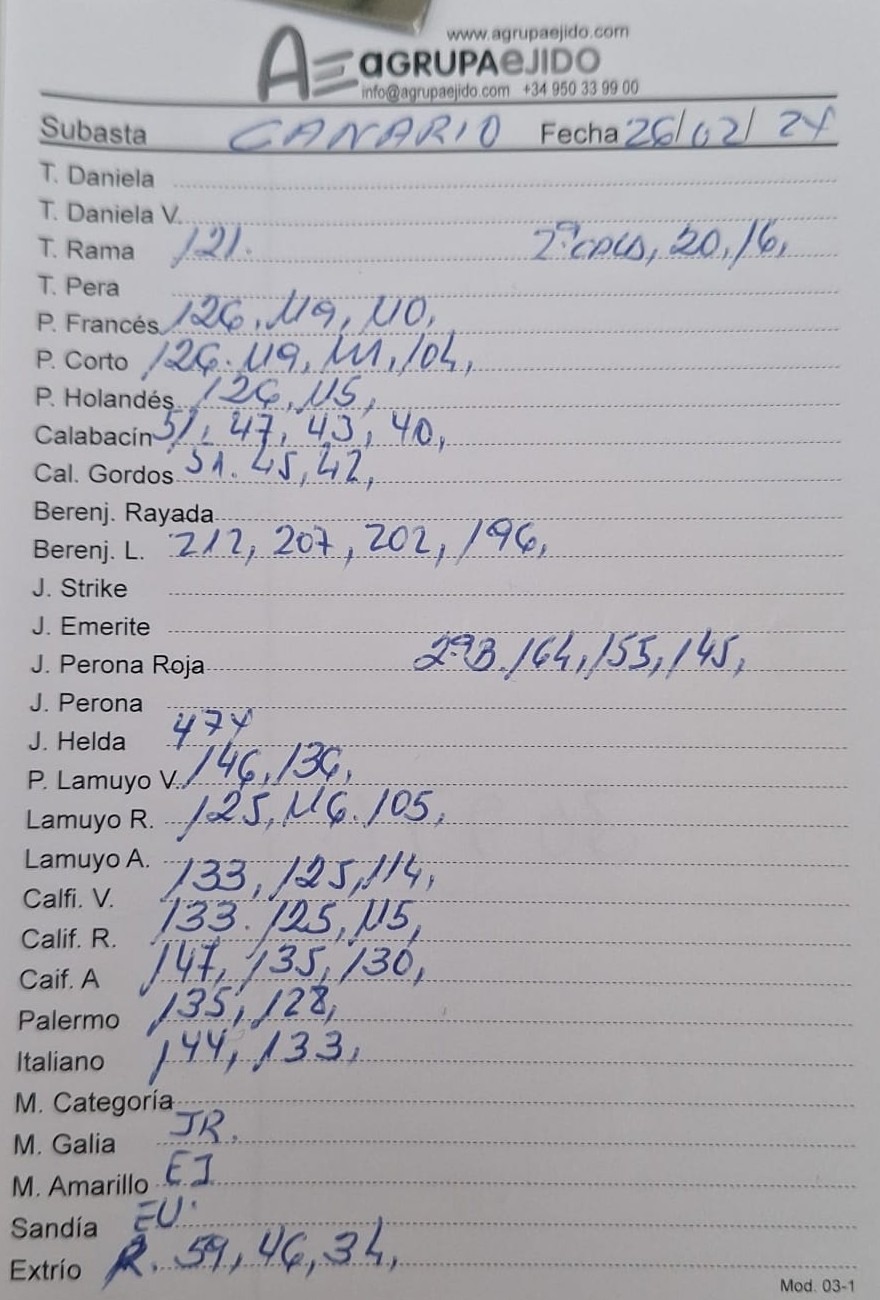 www.agrupaejido.com
AE aGRUPAeJIDO
info@agrupaejido.com +34 950 33 99 00
Subasta CANARIO Fecha 26/02/24
T. Daniela
T. Daniela V.
T. Rama 121. 2ª COLS, 20, 16,
T. Pera
P. Francés 126, 119, 110,
P. Corto 126. 119, 111, 104,
P. Holandés 126, 115,
Calabacín 51, 47, 43, 40,
Cal. Gordos 51. 45, 42,
Berenj. Rayada
Berenj. L. 212, 207, 202, 196,
J. Strike
J. Emerite
J. Perona Roja 2ªB. 164, 155, 145,
J. Perona
J. Helda 474
P. Lamuyo V. 146, 136,
Lamuyo R. 125, 116. 105,
Lamuyo A.
Calfi. V. 133, 125, 114,
Calif. R. 133. 125, 115,
Caif. A 147, 135, 130,
Palermo 135, 128,
Italiano 144, 133,
M. Categoría
M. Galia JR.
M. Amarillo EJ
Sandía EU.
Extrío R. 59, 46, 34,
Mod. 03-1